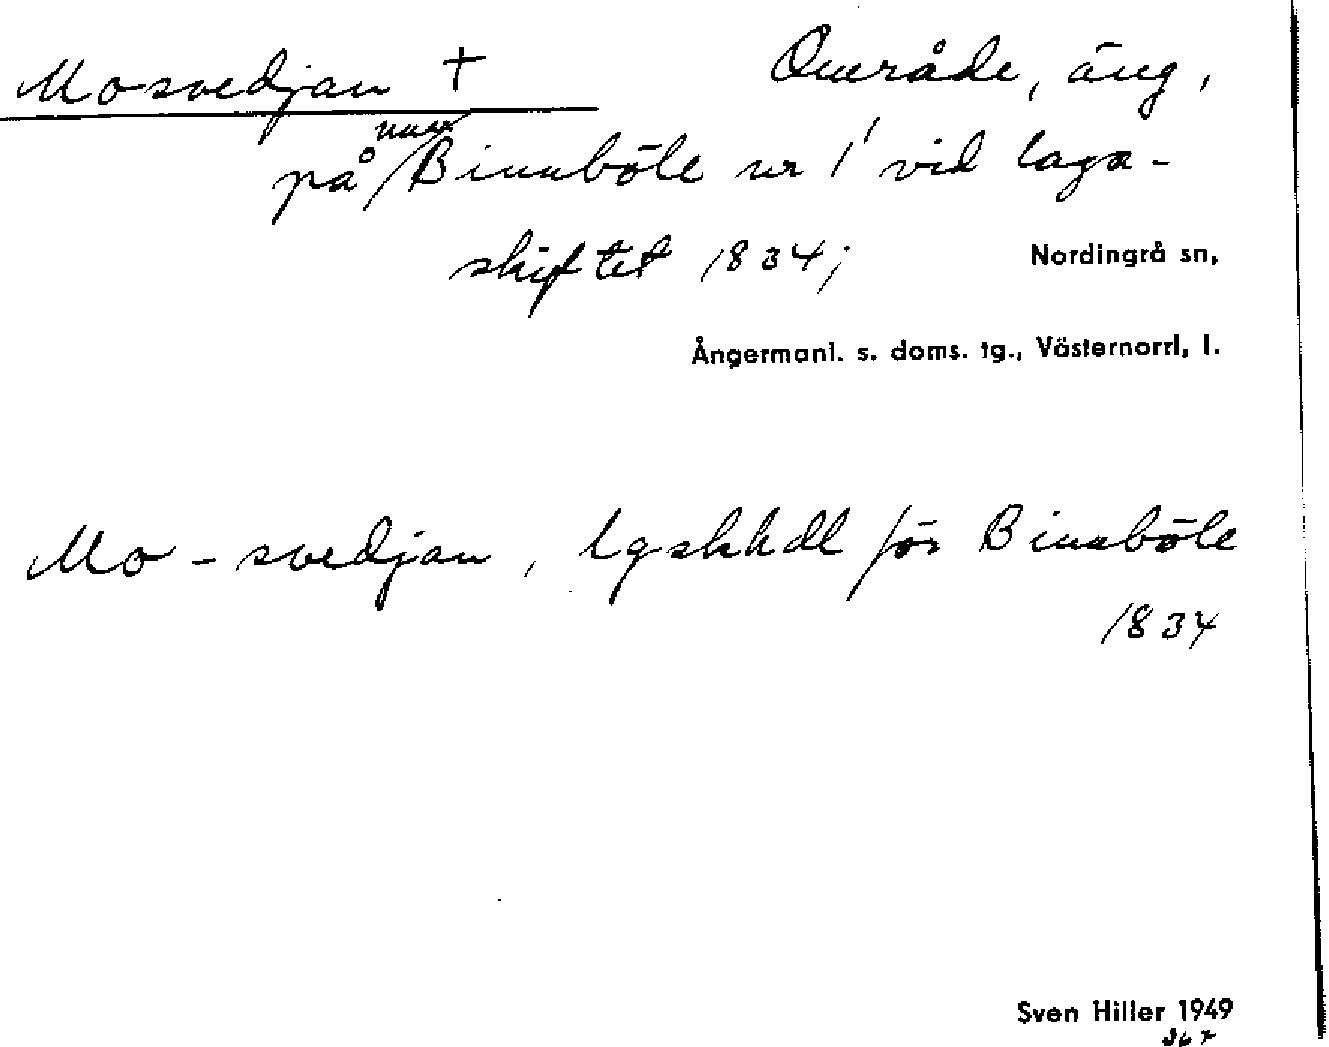 Mosvedjan + Område, äng,
på Binnböle nr 1 vid laga-
skiftet 1834;
Nordingrå sn,
Ångermanl. s. doms. tg., Västernorrl, l.
Mo - svedjan, lgskhdl för Binnböle
1834
Sven Hiller 1949